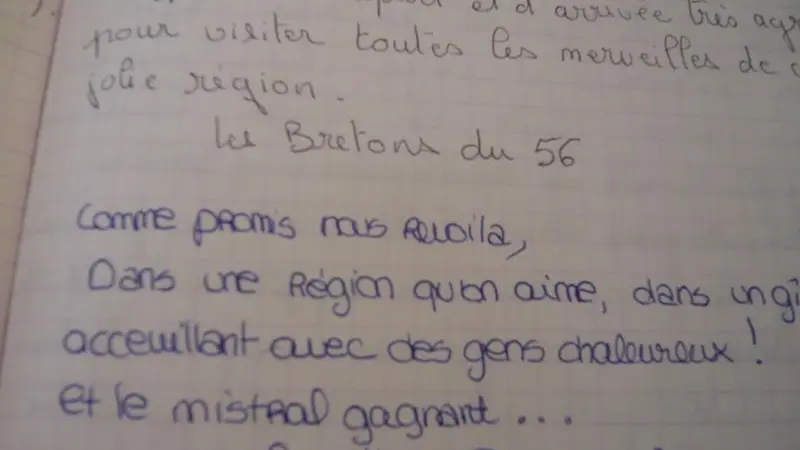 et d'arrivée très agr
pour visiter toutes les merveilles de c
jolie région.
les Bretons du 56
Comme promis nous revoila,
Dans une Région qu'on aime, dans un gî
acceuillant avec des gens chaleureux !
et le mistral gagnant ...